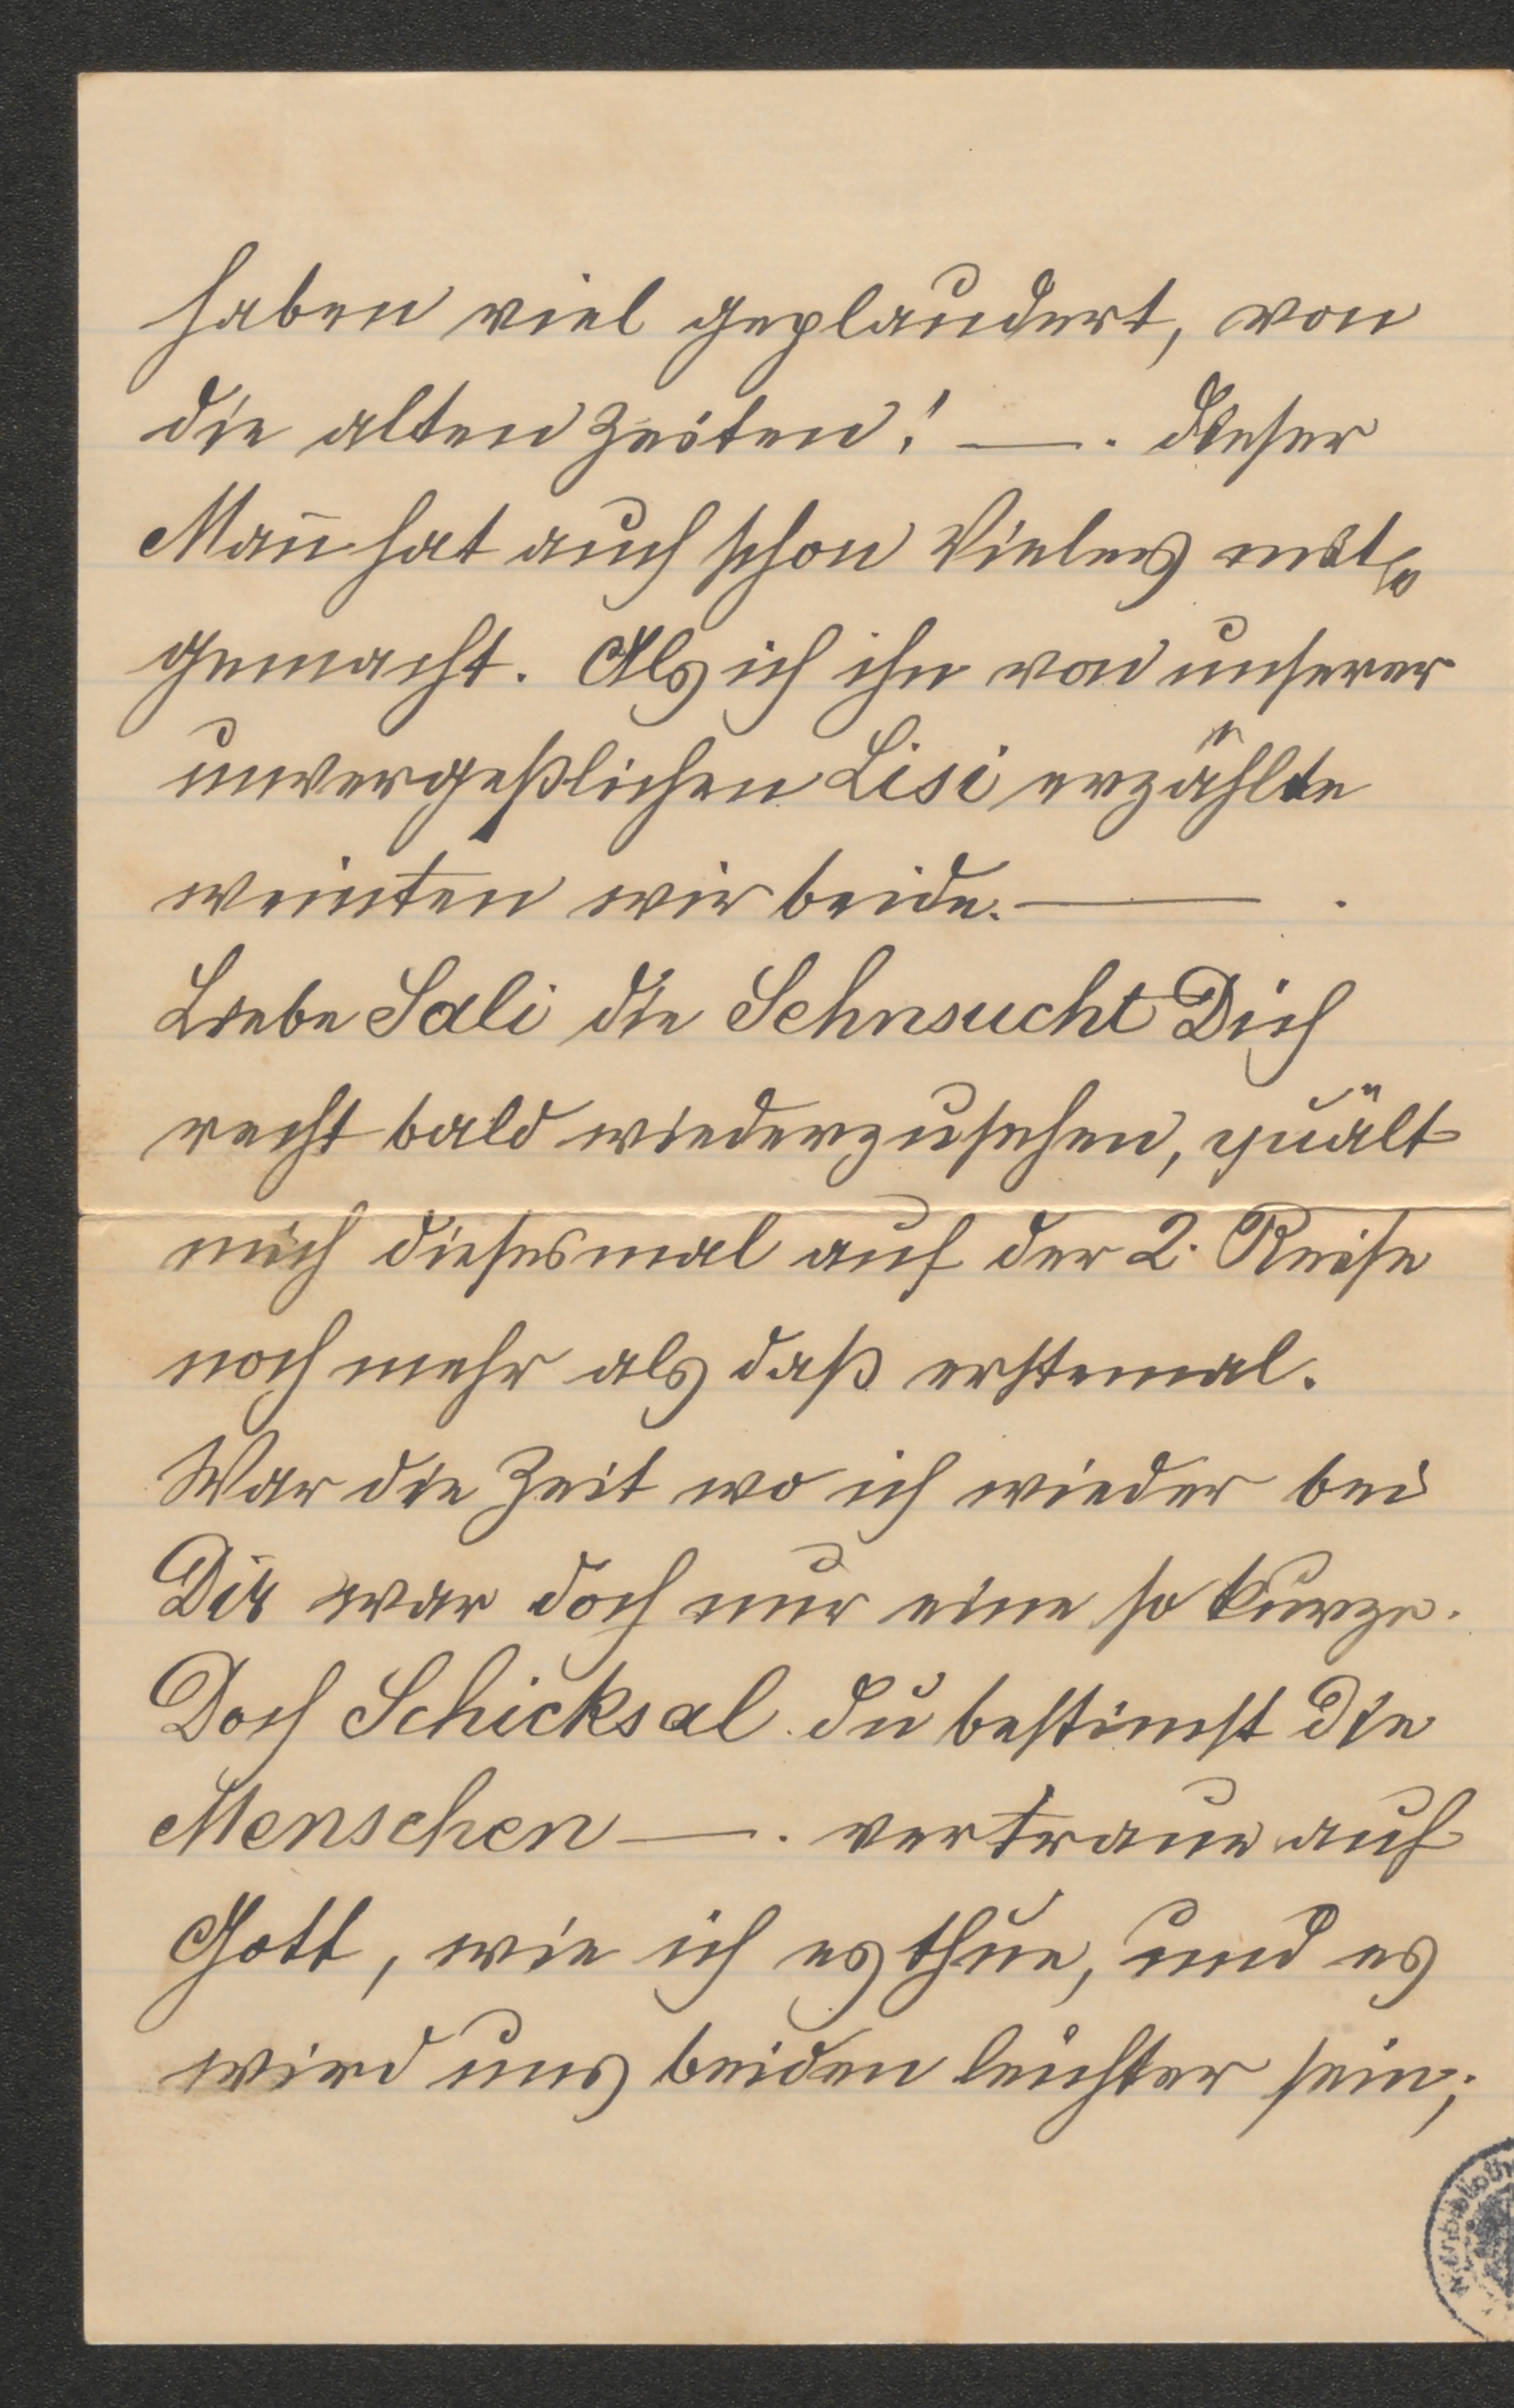 haben viel geplaudert, von
die alten Zeiten! —. dieser
Mañ hat auch schon Vieles mit=
gemacht. Als ich ihn von unserer
unvergeßlichen Lisi erzählte
weinten wir beide. — .
Liebe Sali die Sehnsucht Dich
recht bald wiederzusehen, quält
mich diesesmal auf der 2. Reise
noch mehr als daß erstemal.
War die Zeit wo ich wieder bei
Dir war doch nur eine so kurze.
Doch Schicksal du bestim̄st die
Menschen —. vertraue auf
Gott, wie ich es thue, und es
wird uns beiden leichter sein;